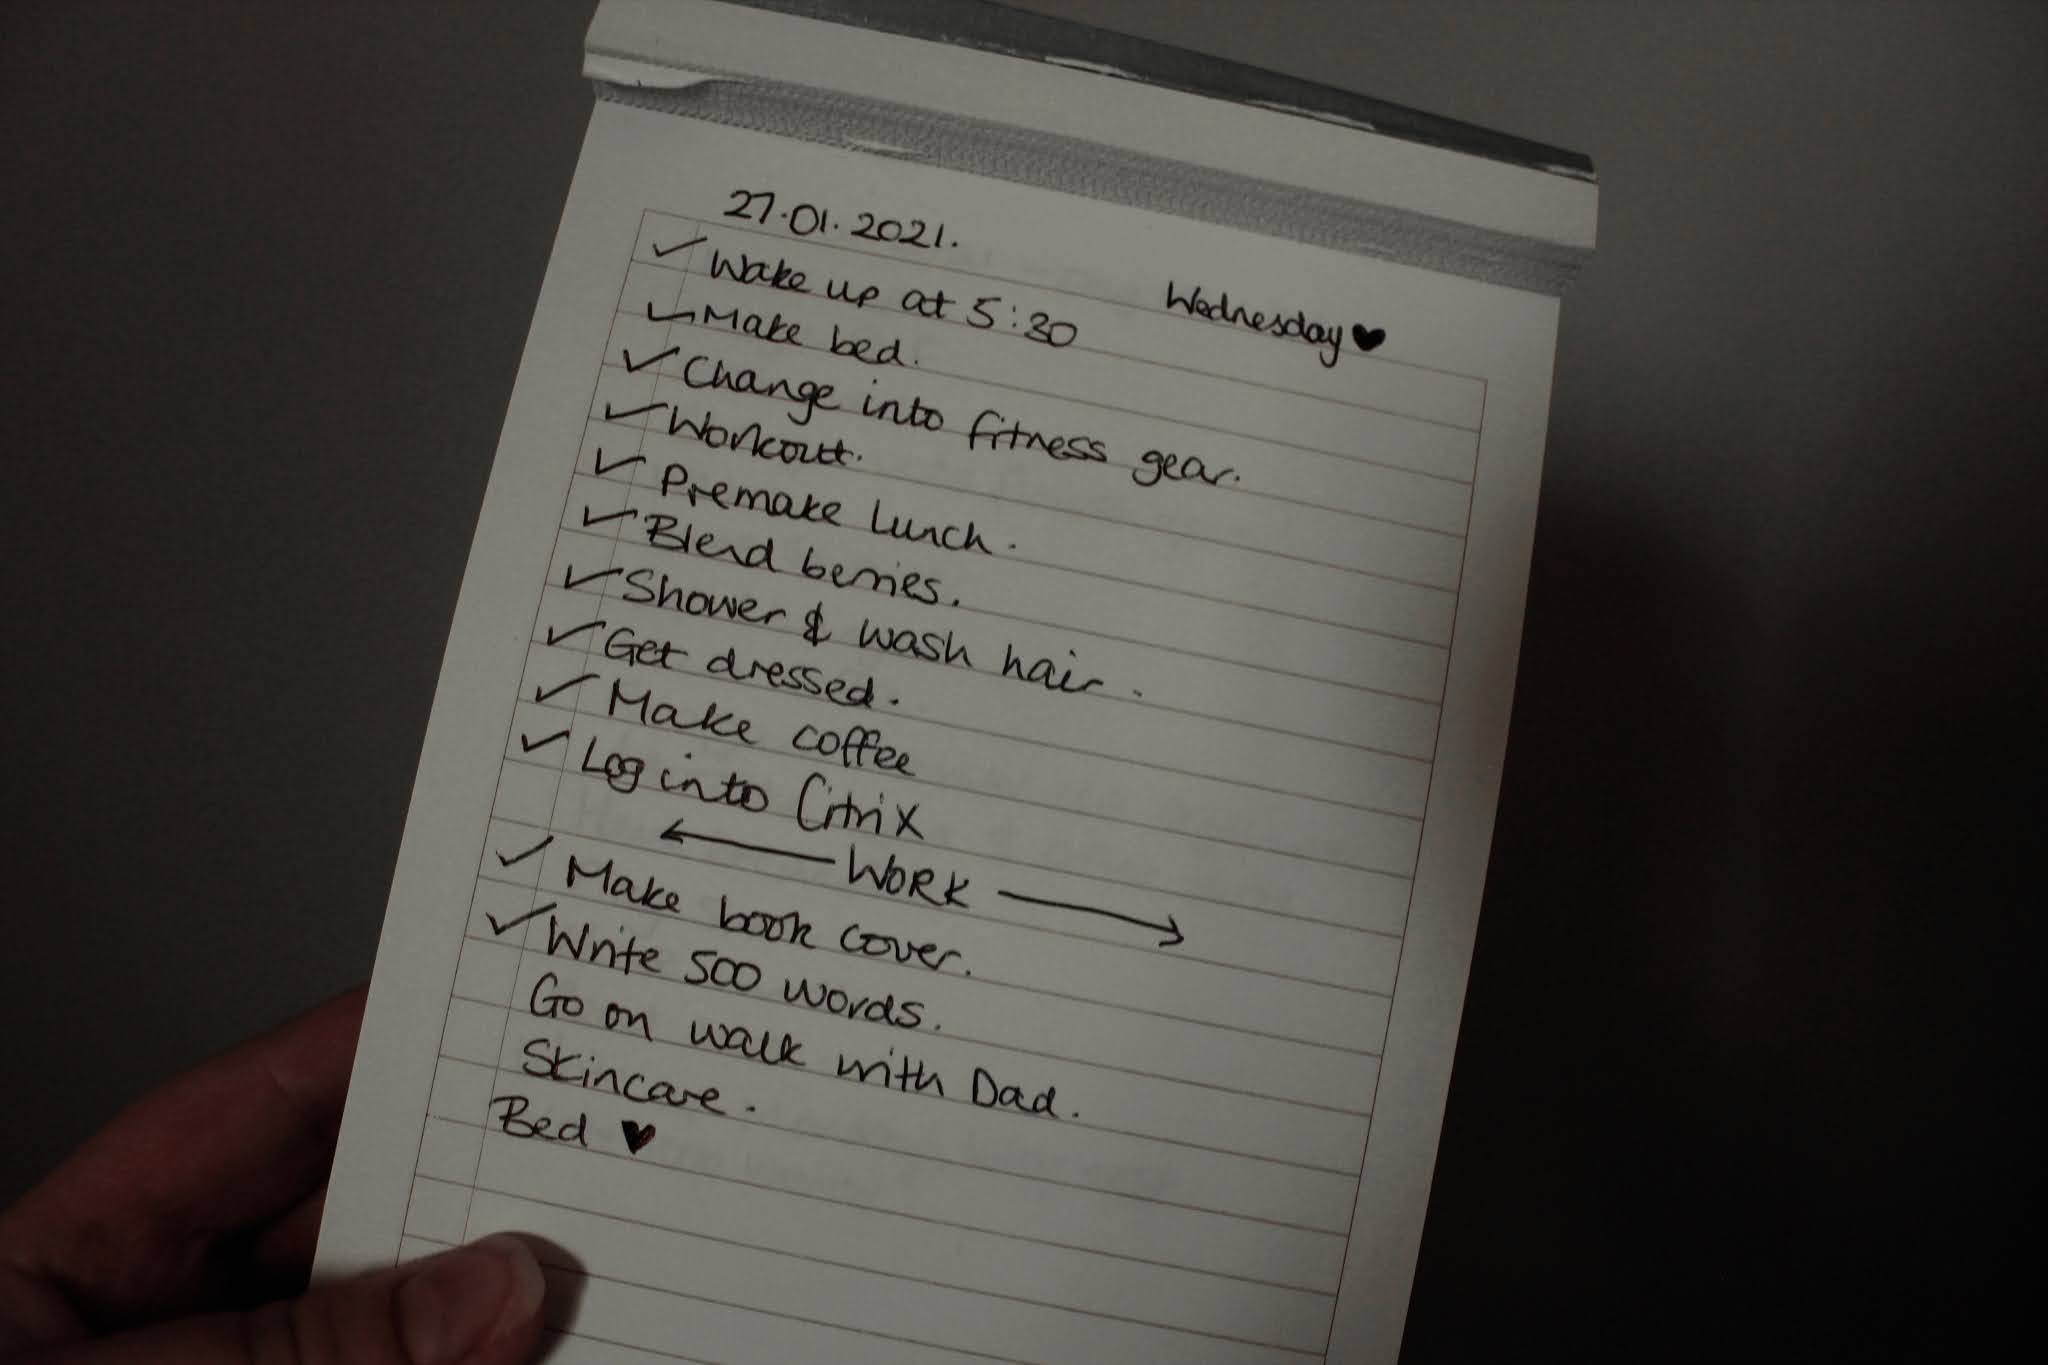 27.01.2021.
Wednesday ♥
✓ Wake up at 5:30
✓ Make bed.
✓ Change into fitness gear.
✓ Workout.
✓ Premake lunch.
✓ Blend berries.
✓ Shower & wash hair.
✓ Get dressed.
✓ Make coffee
✓ Log into Citrix
← WORK →
✓ Make book cover.
✓ Write 500 words.
Go on walk with Dad.
Skincare.
Bed ♥